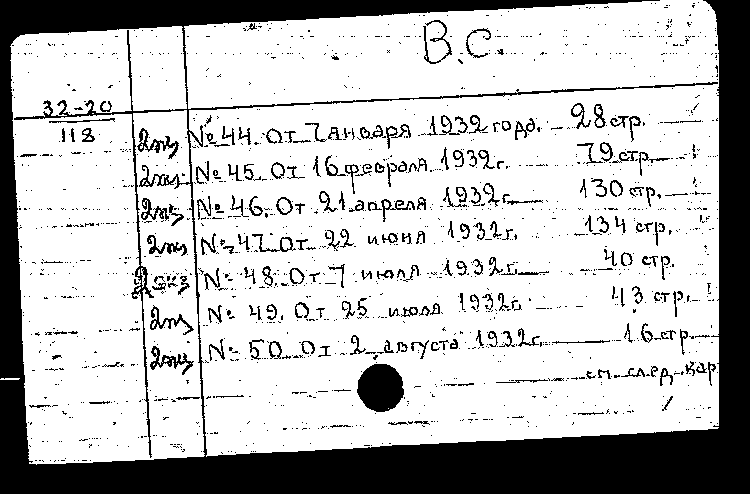 В.С.
32-20
118
2экз № 44. От 7 января 1932 года. 28 стр.
2экз № 45. От 16 февраля 1932 г. 79 стр.
2экз № 46. От 21 апреля 1932 г. 130 стр.
2экз № 47. От 22 июня 1932 г. 134 стр.
2экз № 48. От 7 июля 1932 г. 40 стр.
2экз № 49. От 25 июля 1932 г. 43 стр.
2экз № 50. От 2 августа 1932 г. 16 стр.
см. след. кар